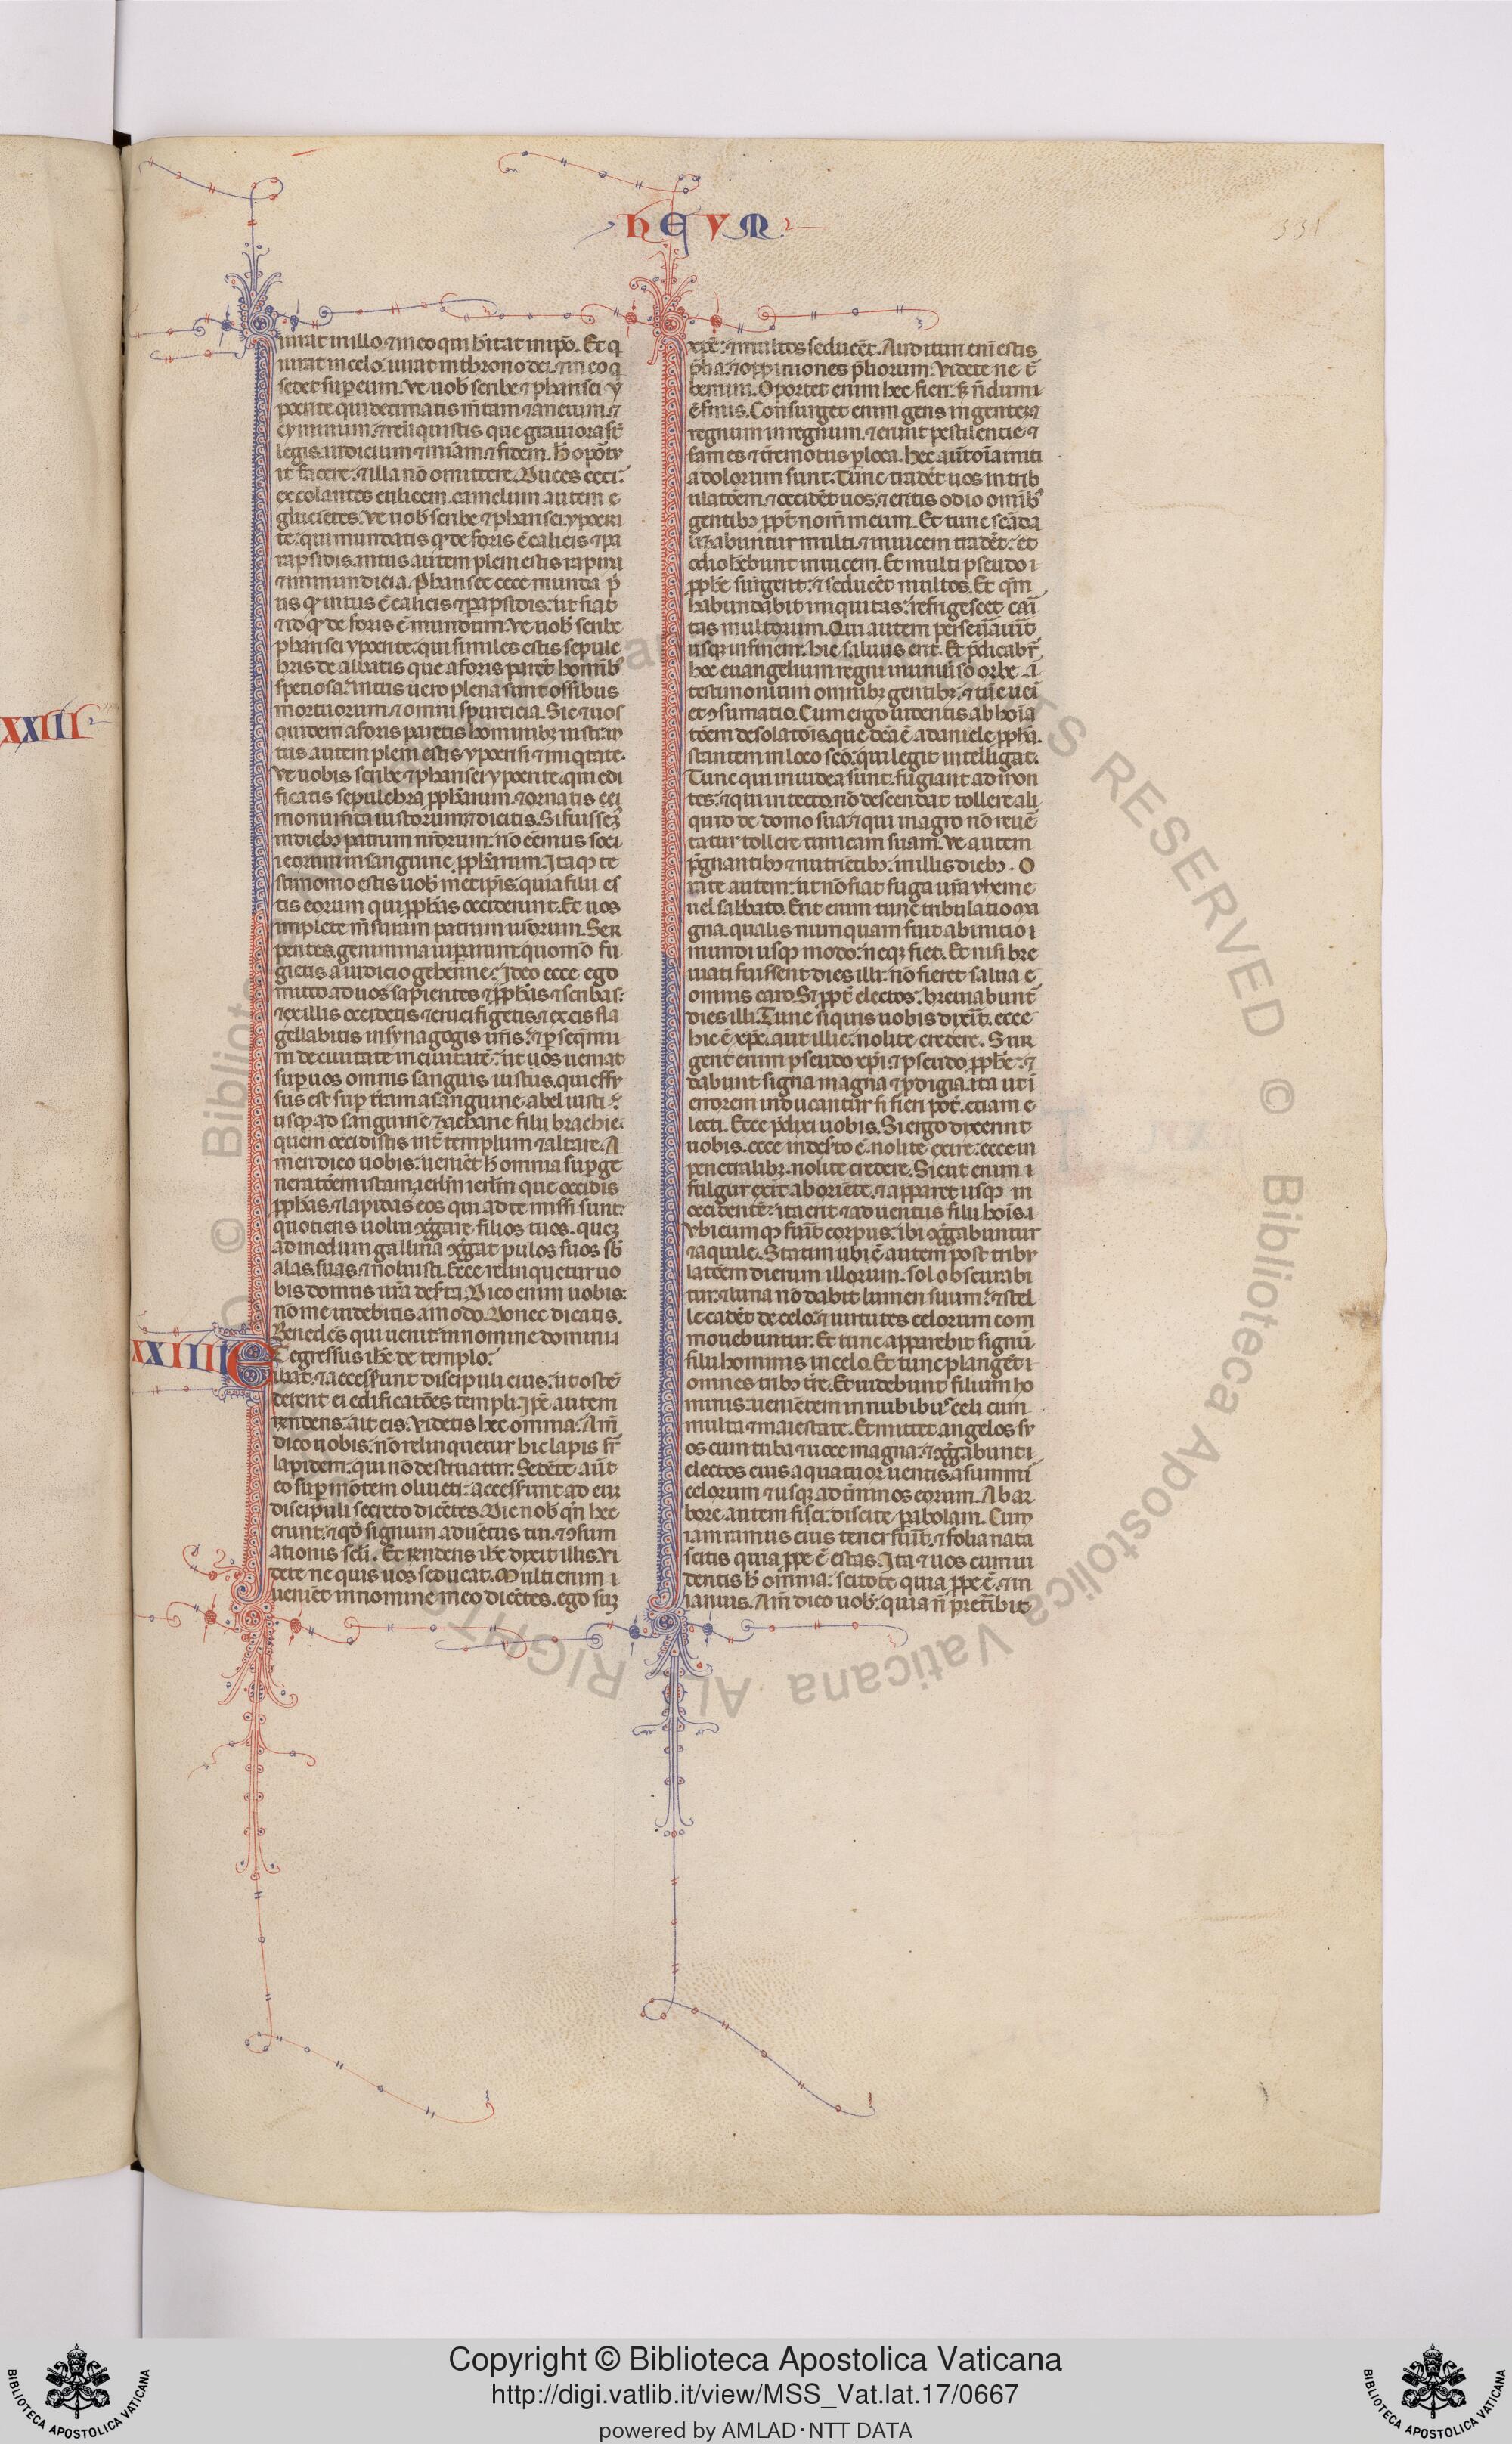 HEUM
331
iurat in illo. ⁊ in eo qui h̄itat in ip̄o. Et q
iurat in celo. iurat in throno dei. ⁊ in eo q
sedet sup eum. Ve uob̄ scribe ⁊ pharisei y
pocrite qui decimatis m̄tam ⁊ anetum. ⁊
cyminum. ⁊ reliquistis que grauiora st̄
legis. iudicium ⁊ mīam ⁊ fidem. h̄ opōtu
it facere. ⁊ illa nō omittere. Duces ceci.
excolantes culicem. camelum autem e
glucientes. Ve uob̄ scribe ⁊ pharisei ypocri
te. qui mundatis qd̄ de foris ē calicis ⁊ pa
rapsidis. intus autem pleni estis rapina
⁊ immundicia. Pharisee cece munda p̄
us qd̄ intus ē calicis ⁊ parapsidis. ut fiat
⁊ id qd̄ de foris ē mundum. Ve uob̄ scribe
pharisei ypocrite. qui similes estis sepulc
hris de albatis que a foris parēt homīb
speciosa. intus uero plena sunt ossibus
mortuorum. ⁊ omni spurcicia. Sic ⁊ uos
quidem a foris paretis hominibꝫ iusti. in
tus autem pleni estis ypocrisi ⁊ iniq̄tate.
Ve uobis scribe ⁊ pharisei ypocrite. qui edi
ficatis sepulchra prophārum. ⁊ ornatis
monumēta iustorum. ⁊ dicitis. Si fuissemꝰ
in diebꝫ patrum nr̄orum. nō eēmus soci
i eorum in sanguine prophārum. Itaqꝫ te
stimonio estis uob̄ metip̄is. quia filii es
tis eorum qui prophās occiderunt. Et uos
implete m̄suram patrum ur̄orum. Ser
pentes. genimina uiperarum. quomō fu
gietis a iudicio gehenne. Ideo ecce ego
mitto ad uos sapientes ⁊ prophās ⁊ scribas.
⁊ ex illis occidetis ⁊ crucifigetis. ⁊ ex eis fla
gellabitis in synagogis ur̄is. ⁊ perseq̄mi
ni de ciuitate in ciuitatē. ut uos ueniat
sup uos omnis sanguis iustus. qui effu
sus est sup terram a sanguine abel iusti.
usqꝫ ad sanguinē zacharie filii barachie.
quem occidistis int̄ templum ⁊ altare. A
men dico uobis. uenient h̄ omnia sup ge
neratōem istam. ierl̄m ierl̄m que occidis
prophās. ⁊ lapidas eos qui ad te missi sunt.
quotiens uolui ꝯgregare filios tuos. quēꝫ
admodum gallina ꝯgregat pullos suos sb̄
alas suas. ⁊ noluisti. Ecce relinquetur uo
bis domus ur̄a deserta. Dico enim uobis.
nō me uidebitis amodo. donec dicatis.
Benedc̄s qui uenit in nomine domini.
XXIIII
ET egressus ihc̄ de templo.
ibat. ⁊ accesserunt discipuli eius. ut ostē
derent ei edificatōes templi. Ip̄e autem
rn̄dens. ait eis. Videtis hec omnia. Am̄
dico uobis. nō relinquetur hic lapis sr̄
lapidem. qui nō destruatur. Sedēte aūt
eo sup montem oliueti. accesserunt ad eum
discipuli secreto dicētes. Dic nob̄ qn̄ hec
erunt. ⁊ qd̄ signum aduentus tui. ⁊ ꝯsum
ationis sc̄li. Et rn̄dens ihc̄ dixit illis. Vi
dete ne quis uos seducat. Multi enim
uenient in nomine meo dicētes. ego sum
xp̄c. ⁊ multos seducēt. Audituri enī estis
p̄lia. ⁊ oppiniones p̄liorum. Videte ne t̄
bemini. Oportet enim hec fieri. sꝫ n̄dum
ē finis. Consurget enim gens in gentem. ⁊
regnum in regnum. ⁊ erunt pestilentie. ⁊
fames ⁊ t̄remotus p loca. hec aūt oīa initi
a dolorum sunt. Tunc tradēt uos in trib
ulatōem. ⁊ occidēt uos. ⁊ eritis odio omīb
gentibꝫ ppt̄ nom̄ meum. Et tunc scāda
lizabuntur multi. ⁊ inuicem tradēt. et
odio habebunt inuicem. Et multi pseudo
prophē surgent. ⁊ seducēt multos. Et qm̄
habundabit iniquitas. refrigescet cari
tas multorum. Qui autem perseuāuit
usqꝫ in finem. hic saluus erit. Et p̄dicabr̄
hoc euangelium regni in uniūso orbe. ī
testimonium omnibꝫ gentibꝫ. ⁊ tūc ueī
et ꝯsumatio. Cum ergo uidentis abhoīa
tōem desolatōis. que dc̄a ē a daniele prophā.
stantem in loco sc̄o. qui legit intelligat.
Tunc qui in iudea sunt. fugiant ad mon
tes. ⁊ qui in tecto. nō descendat tollere ali
quid de domo sua. ⁊ qui in agro nō reuē
tatur tollere tunicam suam. Ve autem
p̄gnantibꝫ ⁊ nutrientibꝫ. in illis diebꝫ. O
rate autem. ut nō fiat fuga ur̄a yheme
uel sabbato. Erit enim tunc tribulatio ma
gna. qualis numquam fuit ab initio
mundi usqꝫ modo. neqꝫ fiet. Et nisi bre
uiati fuissent dies illi. nō fieret salua
omnis caro. Sꝫ ppt̄ electos. breuiabunt̄
dies illi. Tunc si quis uobis dixerit. ecce
hic ē xp̄c. aut illic. nolite credere. Sur
gent enim pseudo xp̄i. ⁊ pseudo prophē. ⁊
dabunt signa magna ⁊ p̄digia. ita ut ī
errorem inducantur si fieri pōt. etiam e
lecti. Ecce p̄dixi uobis. Si ergo dixerint
uobis. ecce in deserto ē. nolite exire. ecce in
penetralibꝫ. nolite credere. Sicut enim
fulgur exit ab oriēte. ⁊ apparet usqꝫ in
occidentē. ita erit ⁊ aduentus filii hoīs.
Vbicumqꝫ fuerit corpus. ibi ꝯgregabuntur
⁊ aquile. Statim autem post tribu
latōem dierum illorum. sol obscurabi
tur. ⁊ luna nō dabit lumen suum. ⁊ stel
le cadēt de celo. ⁊ uirtutes celorum com
mouebuntur. Et tunc apparebit signū
filii hominis in celo. Et tunc plangēt
omnes tribꝫ t̄re. Et uidebunt filium ho
minis. uenientem in nubibus celi cum
multa ⁊ maiestate. Et mittet angelos su
os cum tuba ⁊ uoce magna. ⁊ ꝯgregabunt
electos eius a quatuor uentis. a summi
celorum ⁊ usqꝫ ad t̄minos eorum. Ab ar
bore autem fici. discite parabolam. Cum
iam ramus eius tener fuerit. ⁊ folia nata
scitis quia ppe ē estas. Ita ⁊ uos cum ui
dentis h̄ omnia. scitote quia ppe ē. ⁊ in
ianuis. Am̄ dico uob̄. quia n̄ preteribit
XXIII
Copyright © Biblioteca Apostolica Vaticana
http://digi.vatlib.it/view/MSS_Vat.lat.17/0667
powered by AMLAD·NTT DATA
BIBLIOTECA APOSTOLICA VATICANA
BIBLIOTECA APOSTOLICA VATICANA
© Biblioteca Apostolica Vaticana ALL RIGHTS RESERVED